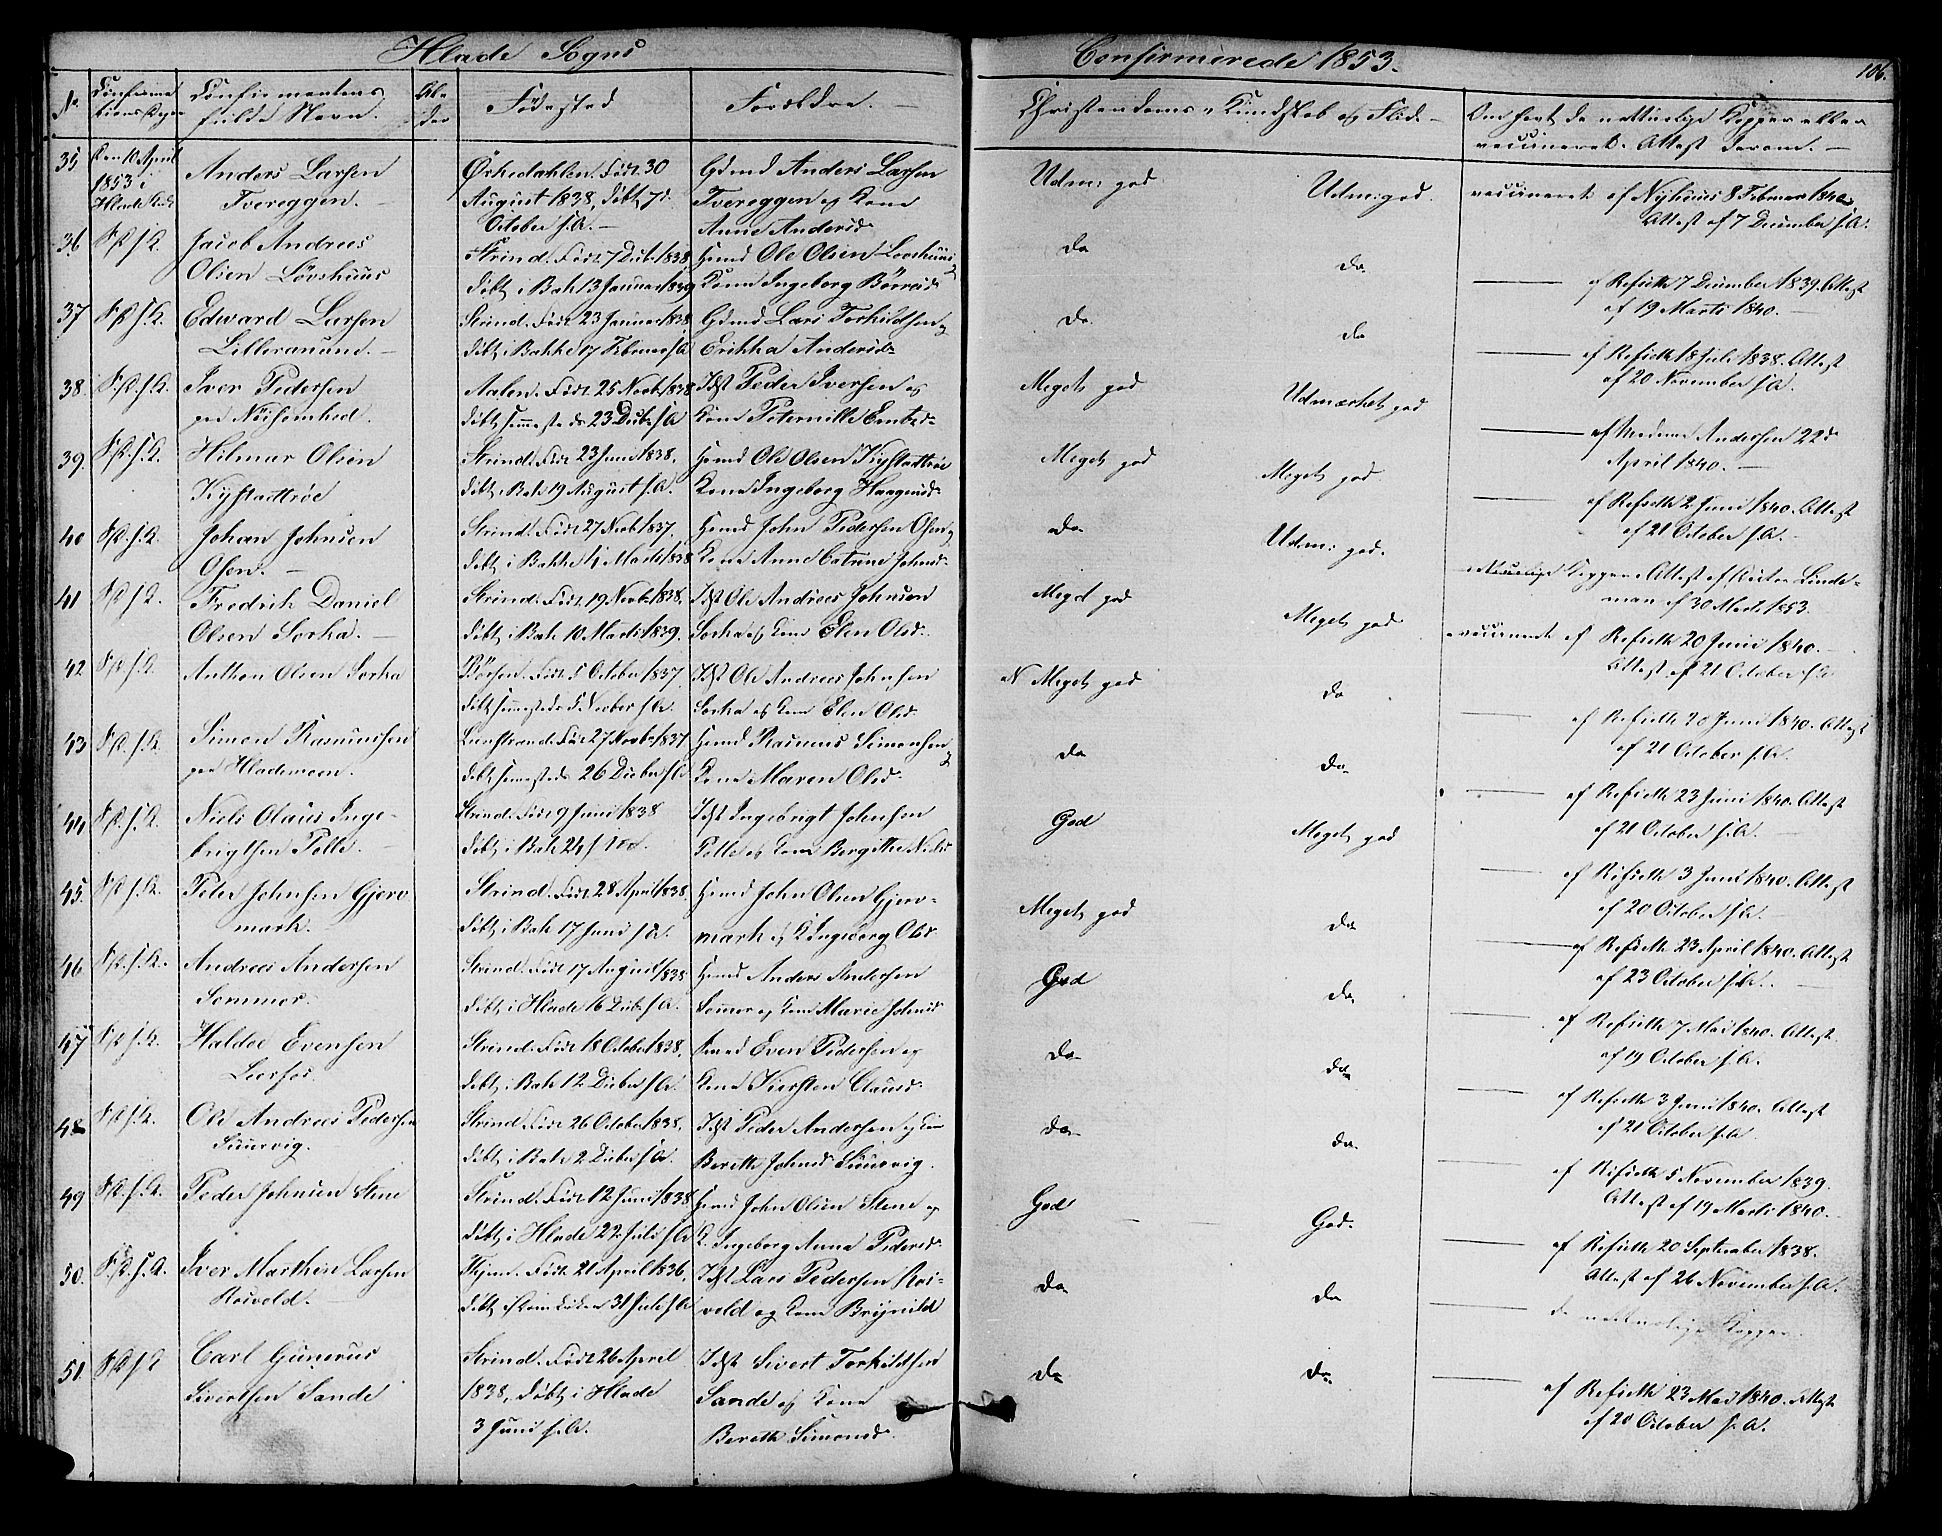 Hlade Sogns
Confirmerede 1853.
106.
Confirma
tions Dagen
Confirmantens
fulde Navn.
Al-
der
Fødested
Forældre. —
Christendoms-Kundskab og Flid. —
Om havt de naturlige Kopper eller
vaccineret. Attest derom. —
35 Den 10 April
1853 i
Hlade Kirke
Anders Larsen
Tvereggen. —
Ørkedahlen. Født 30
August 1838, døbt 7de
October s.A. —
Gdmd Anders Larsen
Tvereggen og Kone
Anne Andersd.
Udm: god
Udm: god.
vaccineret af Nyhuus 8 Februar 1840.
Attest af 7 December s.A.
36 S.D. s.K.
Jacob Andreas
Olsen Lövshuus
Strind. Født 7 Decb. 1838
døbt i Bak. 13 Januar 1839
Huusmd Ole Olsen Lovshuus
Kone Ingeborg Börresd.
do
do.
af Refseth 7 December 1839. Attest
af 19 Marts 1840. —
37 S.D. s.K.
Edward Larsen
Lilleranund. —
Strind. Født 23 Januar 1838
døbt i Bakke 17 Februar s.A
Gdmd Lars Torkildsen
Erikka Andersd.
do.
do
af Refseth 18 Juli 1838. Attest
af 20 November s.A.
38. S.D. s.K.
Iver Pedersen
paa Nöisomhed.
Aalen. Født 25 Novb. 1838
døbt sammesteds 23 Decb. s.A
Idst Peder Iversen og
Kone Peternille Embretsd.
Meget god
Udmærket god
af Madame Andersen 22de
April 1840. —
39. S.D. s.K.
Hilmar Olsen
Kystadtröe
Strind. Født 23 Juni 1838.
døbt i Bak. 19 August s.A.
Huusmd Ole Olsen Kystadtröe
Kone Ingeborg Haagensd.
Meget god
Meget god.
af Refseth 2 Juni 1840. Attest
af 21 October s.A. —
40 S.D. s.K.
Johan Johnsen
Osen. —
Strind. Født 27 Novb. 1837.
døbt i Bakke 4 Marts 1838
Huusmd John Pedersen Osen
Kone Anne Catrine Johnsd.
do
Udm: god.
naturlige Kopper. Attest af Rector Linde-
man af 30 Mart. 1853.
41 S.D. s.K.
Fredrik Daniel
Olsen Sorka. —
Strind. Født 19 Novb. 1838.
døbt i Bak. 10 Marts 1839.
Idst Ole Andreas Johnsen
Sorka og Kone Elen Olsd.
Meget god
Meget god
vaccineret af Refseth 20 Juni 1840. —
Attest af 21 October s.A
42 S.D. s.K.
Anthon Olsen Sorka
Börsen. Født 5 October 1837.
døbt sammesteds 5 November s.A.
Idst Ole Andreas Johnsen
Sorka og Kone Elen Olsd.
N Meget god
do
af Refseth 20 Juni 1840. Attest
af 21 October s.A.
43 S.D. s.K.
Simon Rasmussen
paa Hlademoen.
Leinstrand. Født 27 Novbr 1837
døbt sammesteds 26 December s.A
Huusmd Rasmus Simonsen
Kone Maren Olsd.
do
do.
af Refseth 23 Juni 1840. Attest
af 21 October s.A. —
44 S.D. s.K.
Niels Olaus Inge-
brigtsen Polle. —
Strind. Født 9 Juni 1838
døbt i Bak. 24 s. M.
Idst Ingebrigt Johnsen
Polle og Kone Bergitte Nielsd
God
Meget god
af Refseth 3 Juni 1840. Attest
af 20 October s.A.
45. S.D. s.K.
Peter Johnsen Gjero
mark.
Strind. Født 28 April 1838.
døbt i Bak. 17 Juni s.A.
Huusmd John Olsen Gjero-
mark og K. Ingeborg Olsd.
Meget god
do.
af Refseth 23 April 1840. Attest
af 23 October s.A. —
46. S.D. s.K.
Andreas Andersen
Sommer.
Strind. Født 17 August 1838
døbt i Hlade 16 Decb. s.A.
Huusmd Anders Andersen
Sommer og Kone Marie Johnsd
God
do.
af Refseth 7 Mai 1840. Attest
af 19 October s.A.
47 S.D. s.K.
Haldoe Evensen
Leerfos.
Strind. Født 18 October 1838.
døbt i Bak. 12 December s.A.
Huusmd Even Pedersen og
Kone Kiersten Clausd.
do.
do.
af Refseth 3 Juni 1840. Attest
af 21 October s.A.
48 S.D. s.K.
Ole Andreas Pedersen
Siuervig.
Strind. Født 26 October 1838.
døbt i Bak. 2 December s.A.
Idst Peder Andersen og Kone
Bereth Johnsd Siuervig.
do.
do.
af Refseth 5 November 1839.
Attest af 19 Marts 1840.
49 S.D. s.K.
Peder Johnsen Stene
Strind. Født 12 Juni 1838
døbt i Hlade 22 Juli s.A
Huusmd John Olsen Stene og
K. Ingeborg Anna Pedersd.
God
God.
af Refseth 20 September 1838.
Attest af 26 November s.A.
50. S.D. s.K.
Iver Marthin Larsen
Roiveld. —
Født 21 April 1836.
31 Juli s.A
Idst Lars Pedersen Roi-
veld og Kone Brynild
do.
do
de naturlige Kopper.
51. S.D. s.K
Carl Gunerus
Sivertsen Sande
Strind. Født 26 April
1838, døbt i Hlade
3 Juni s.A.
Idst Sivert Torkildsen
Sande og Kone
Bereth Simonsd.
do
do.
af Refseth 23 Mai 1840. Attest
af 20 October s.A.